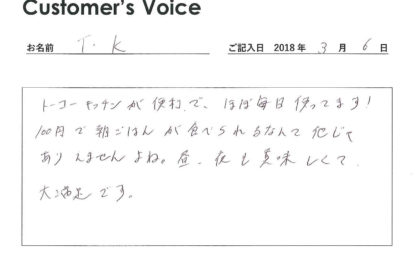 Customer's Voice
お名前 T.K ご記入日 2018年 3月 6日
トーコーキッチンが便利で、ほぼ毎日使ってます！
100円で朝ごはんが食べられるなんて他じゃ
ありえませんよね。昼、夜も美味しくて
大満足です。